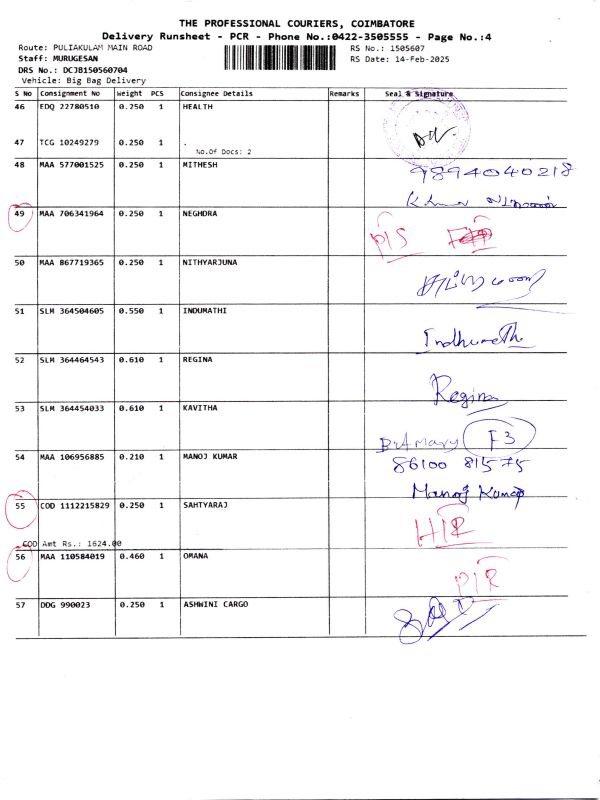 THE PROFESSIONAL COURIERS, COIMBATORE
Delivery Runsheet - PCR - Phone No.:0422-3505555 - Page No.:4
Route: PULIAKULAM MAIN ROAD
Staff: MURUGESAN
DRS No.: DCJB150560704
Vehicle: Big Bag Delivery
RS No.: 1505607
RS Date: 14-Feb-2025
S No Consignment No Weight PCS Consignee Details Remarks Seal & Signature
46 EDQ 22780510 0.250 1 HEALTH
47 TCG 10249279 0.250 1 .
No.Of Docs: 2
48 MAA 577001525 0.250 1 MITHESH 9894040218
49 MAA 706341964 0.250 1 NEGHDRA
50 MAA 867719365 0.250 1 NITHYARJUNA
51 SLM 364504605 0.550 1 INDUMATHI
52 SLM 364464543 0.610 1 REGINA
Regina
53 SLM 364454033 0.610 1 KAVITHA
F3
54 MAA 106956885 0.210 1 MANOJ KUMAR 86100 81575
Manoj Kumar
55 COD 1112215829 0.250 1 SAHTYARAJ
COD Amt Rs.: 1624.00
56 MAA 110584019 0.460 1 OMANA
57 DDG 990023 0.250 1 ASHWINI CARGO